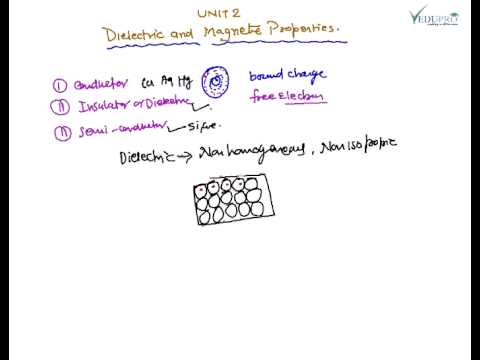 UNIT 2
VEDUPRO
Dielectric and Magnetic Properties.
① Conductor Cu Ag Hg
bound charge
② Insulator or Dielectric
free Electron
③ Semi-conductor Si, Ge
Dielectric → Non homogeneous, Non isotropic